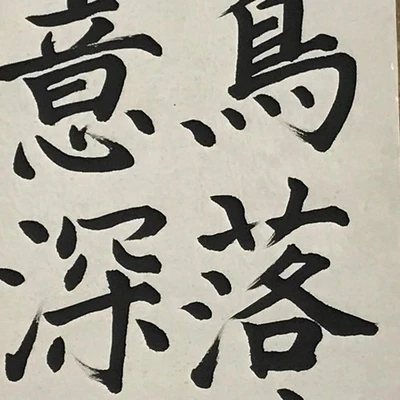 鳥落
意深